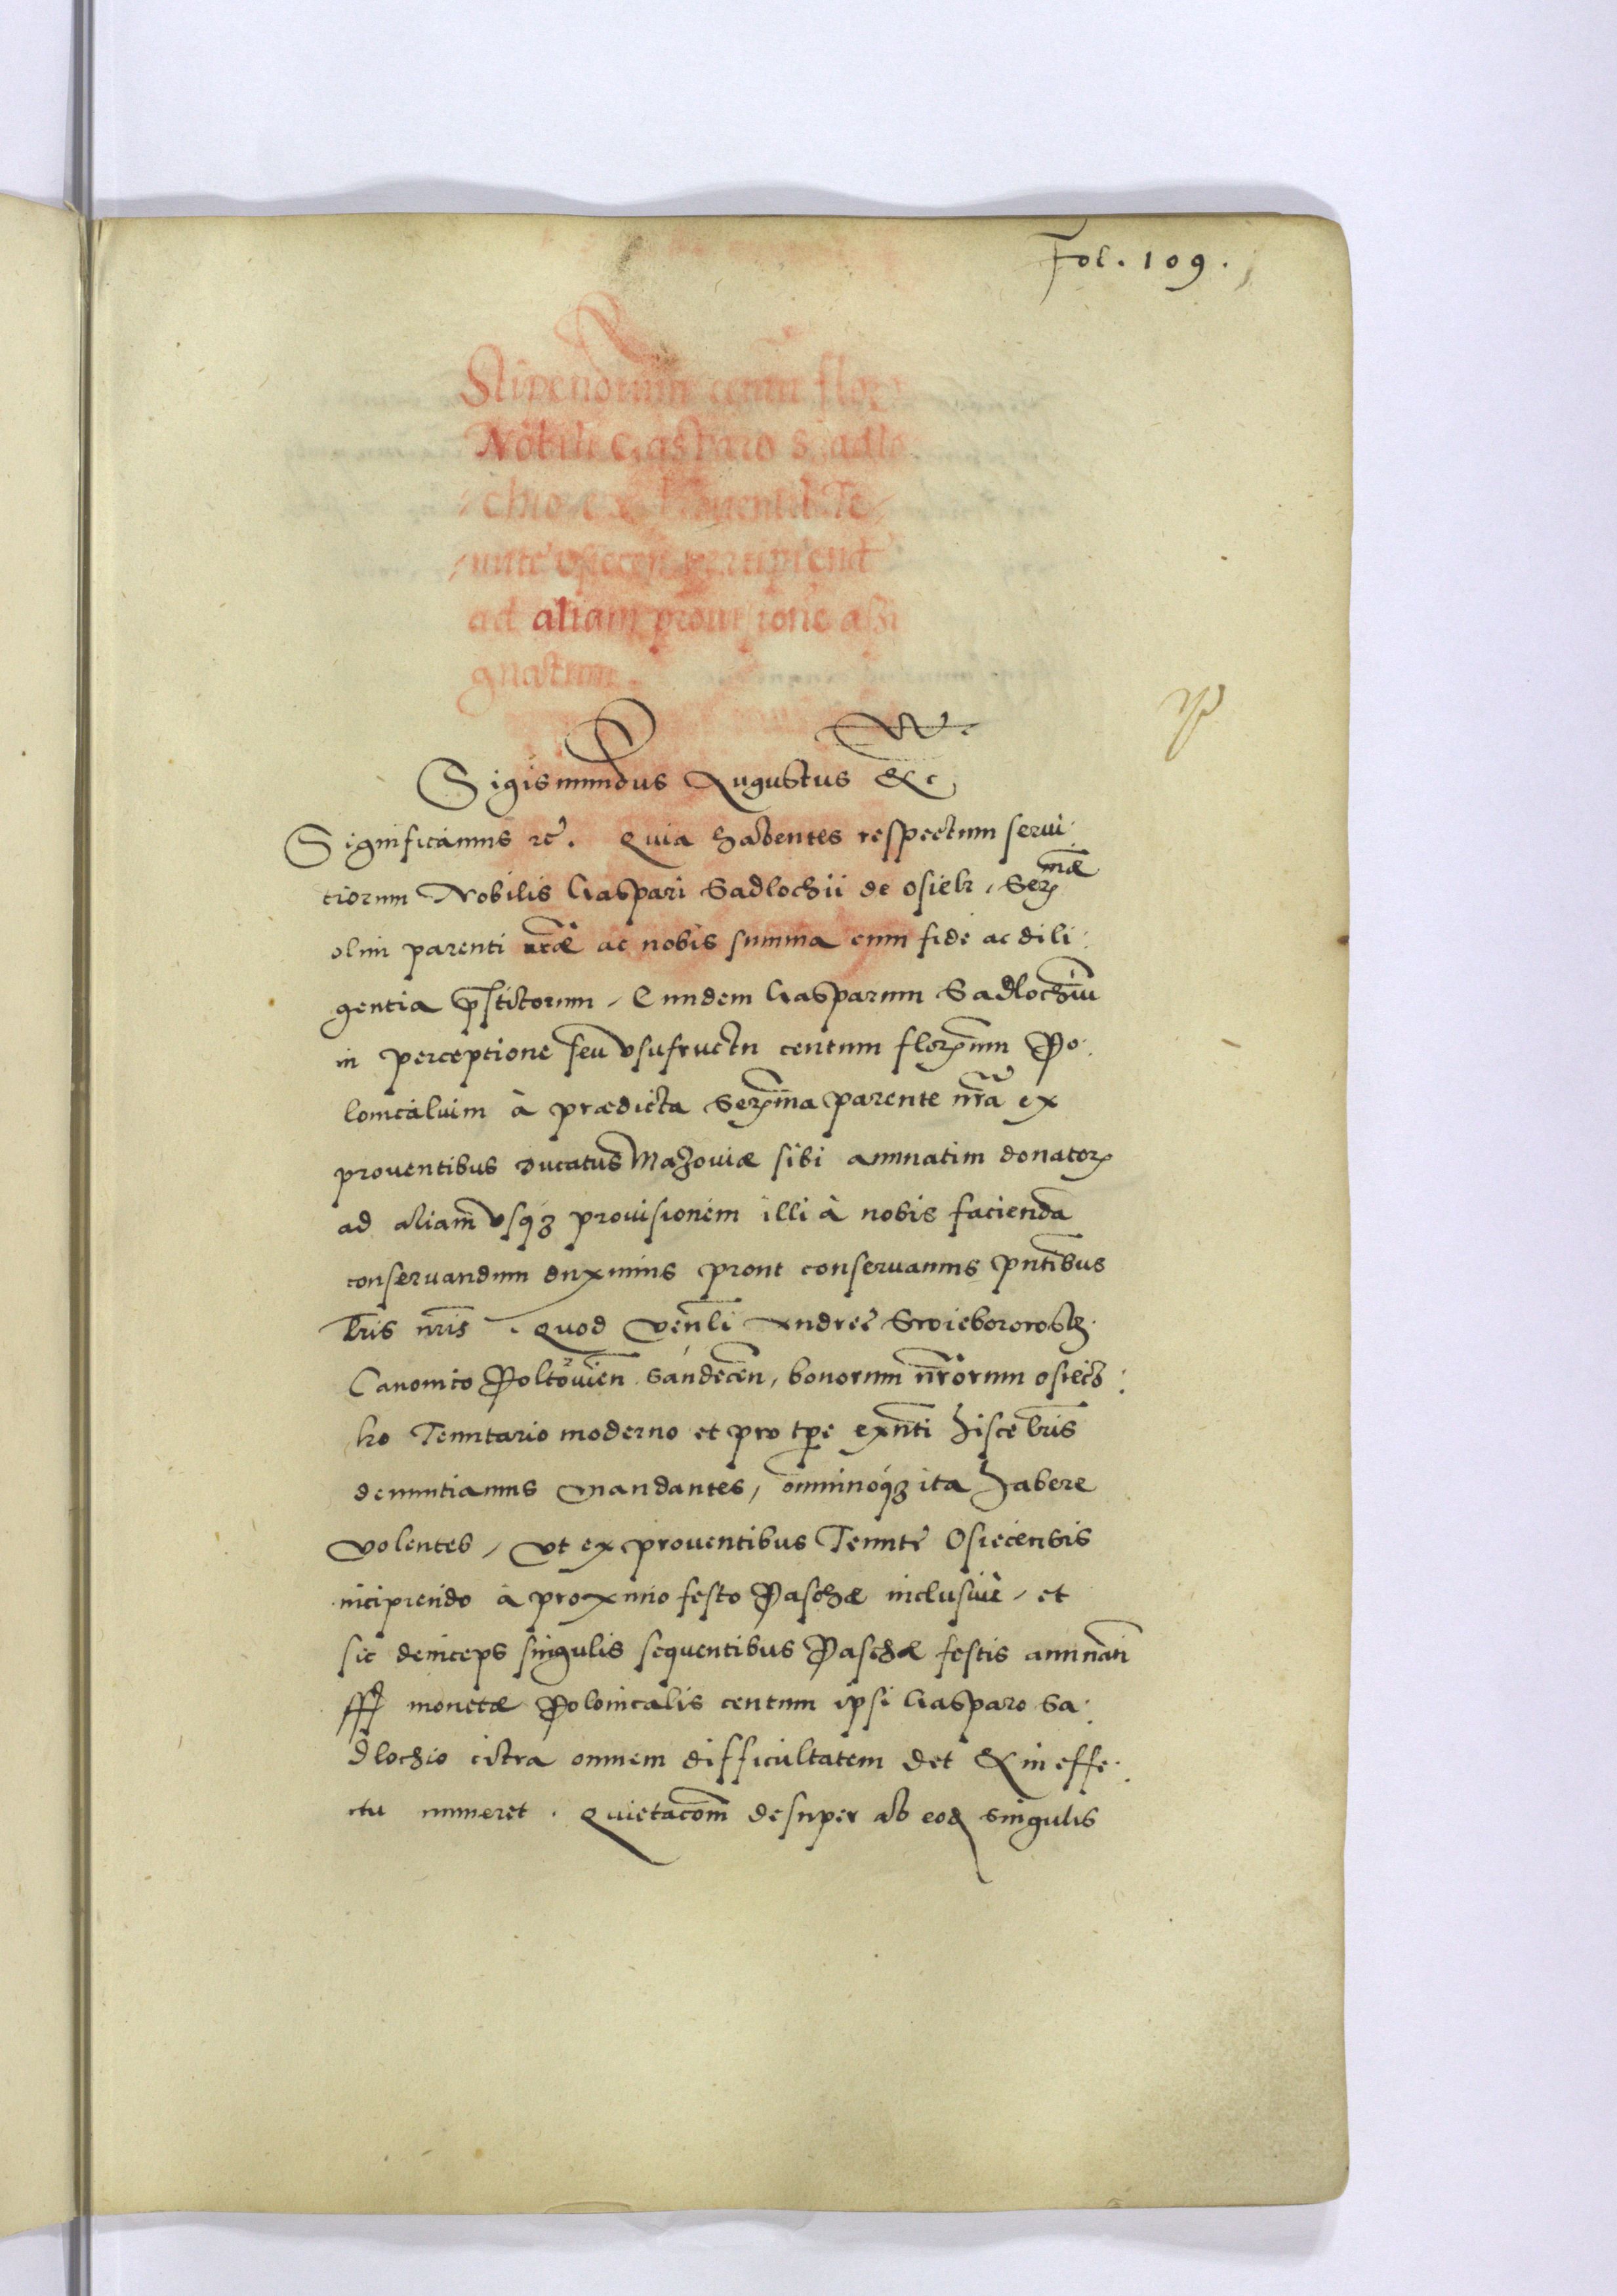 Fol. 109.
Stipendium centũ flor
Nobili Gasparo Sadlo
chio ex prouentib Te
nutẽ Osiecen percipiend
ad aliam prouisione assi
gnatum.
Sigismundus Augustus &c
Significamus rc̃. Quia habentes respectum serui
tiorum Nobilis Gaspari Sadlochii de Osiek, Serꝫmæ
olim parenti nr̃æ ac nobis summa cum fide ac dili
gentia p̃stitorum, Eundem Gasparum Sadlochiũ
in perceptione seu vsufructu centum florenum Po
lonicalium à prædicta Serꝫma parente nr̃a ex
prouentibus Ducatus Mazouiæ sibi annuatim donatorꝫ
ad aliam vsqꝫ prouisionem illi à nobis faciendã
conseruandum duximus prout conseruamus pñtibus
lr̃is nr̃is. Quod Veñli Andreẽ
Canonico Sandecen̄, bonorum nr̃orum Osiecz
ko Tenutario moderno et pro tp̃e exñti hisce lr̃is
denuntiamus mandantes, omninoqꝫ ita habere
volentes, vt ex prouentibus Tenutẽ Osiecensis
incipiendo à proximo festo Paschæ inclusiuè, et
sic deinceps singulis sequentibus Paschæ festis annuatĩ
ff monetæ Polonicalis centum ipsi Gasparo Sa
dlochio citra omnem difficultatem det & in effe
ctu numeret. Quietacom̃ desuper ab eod singulis